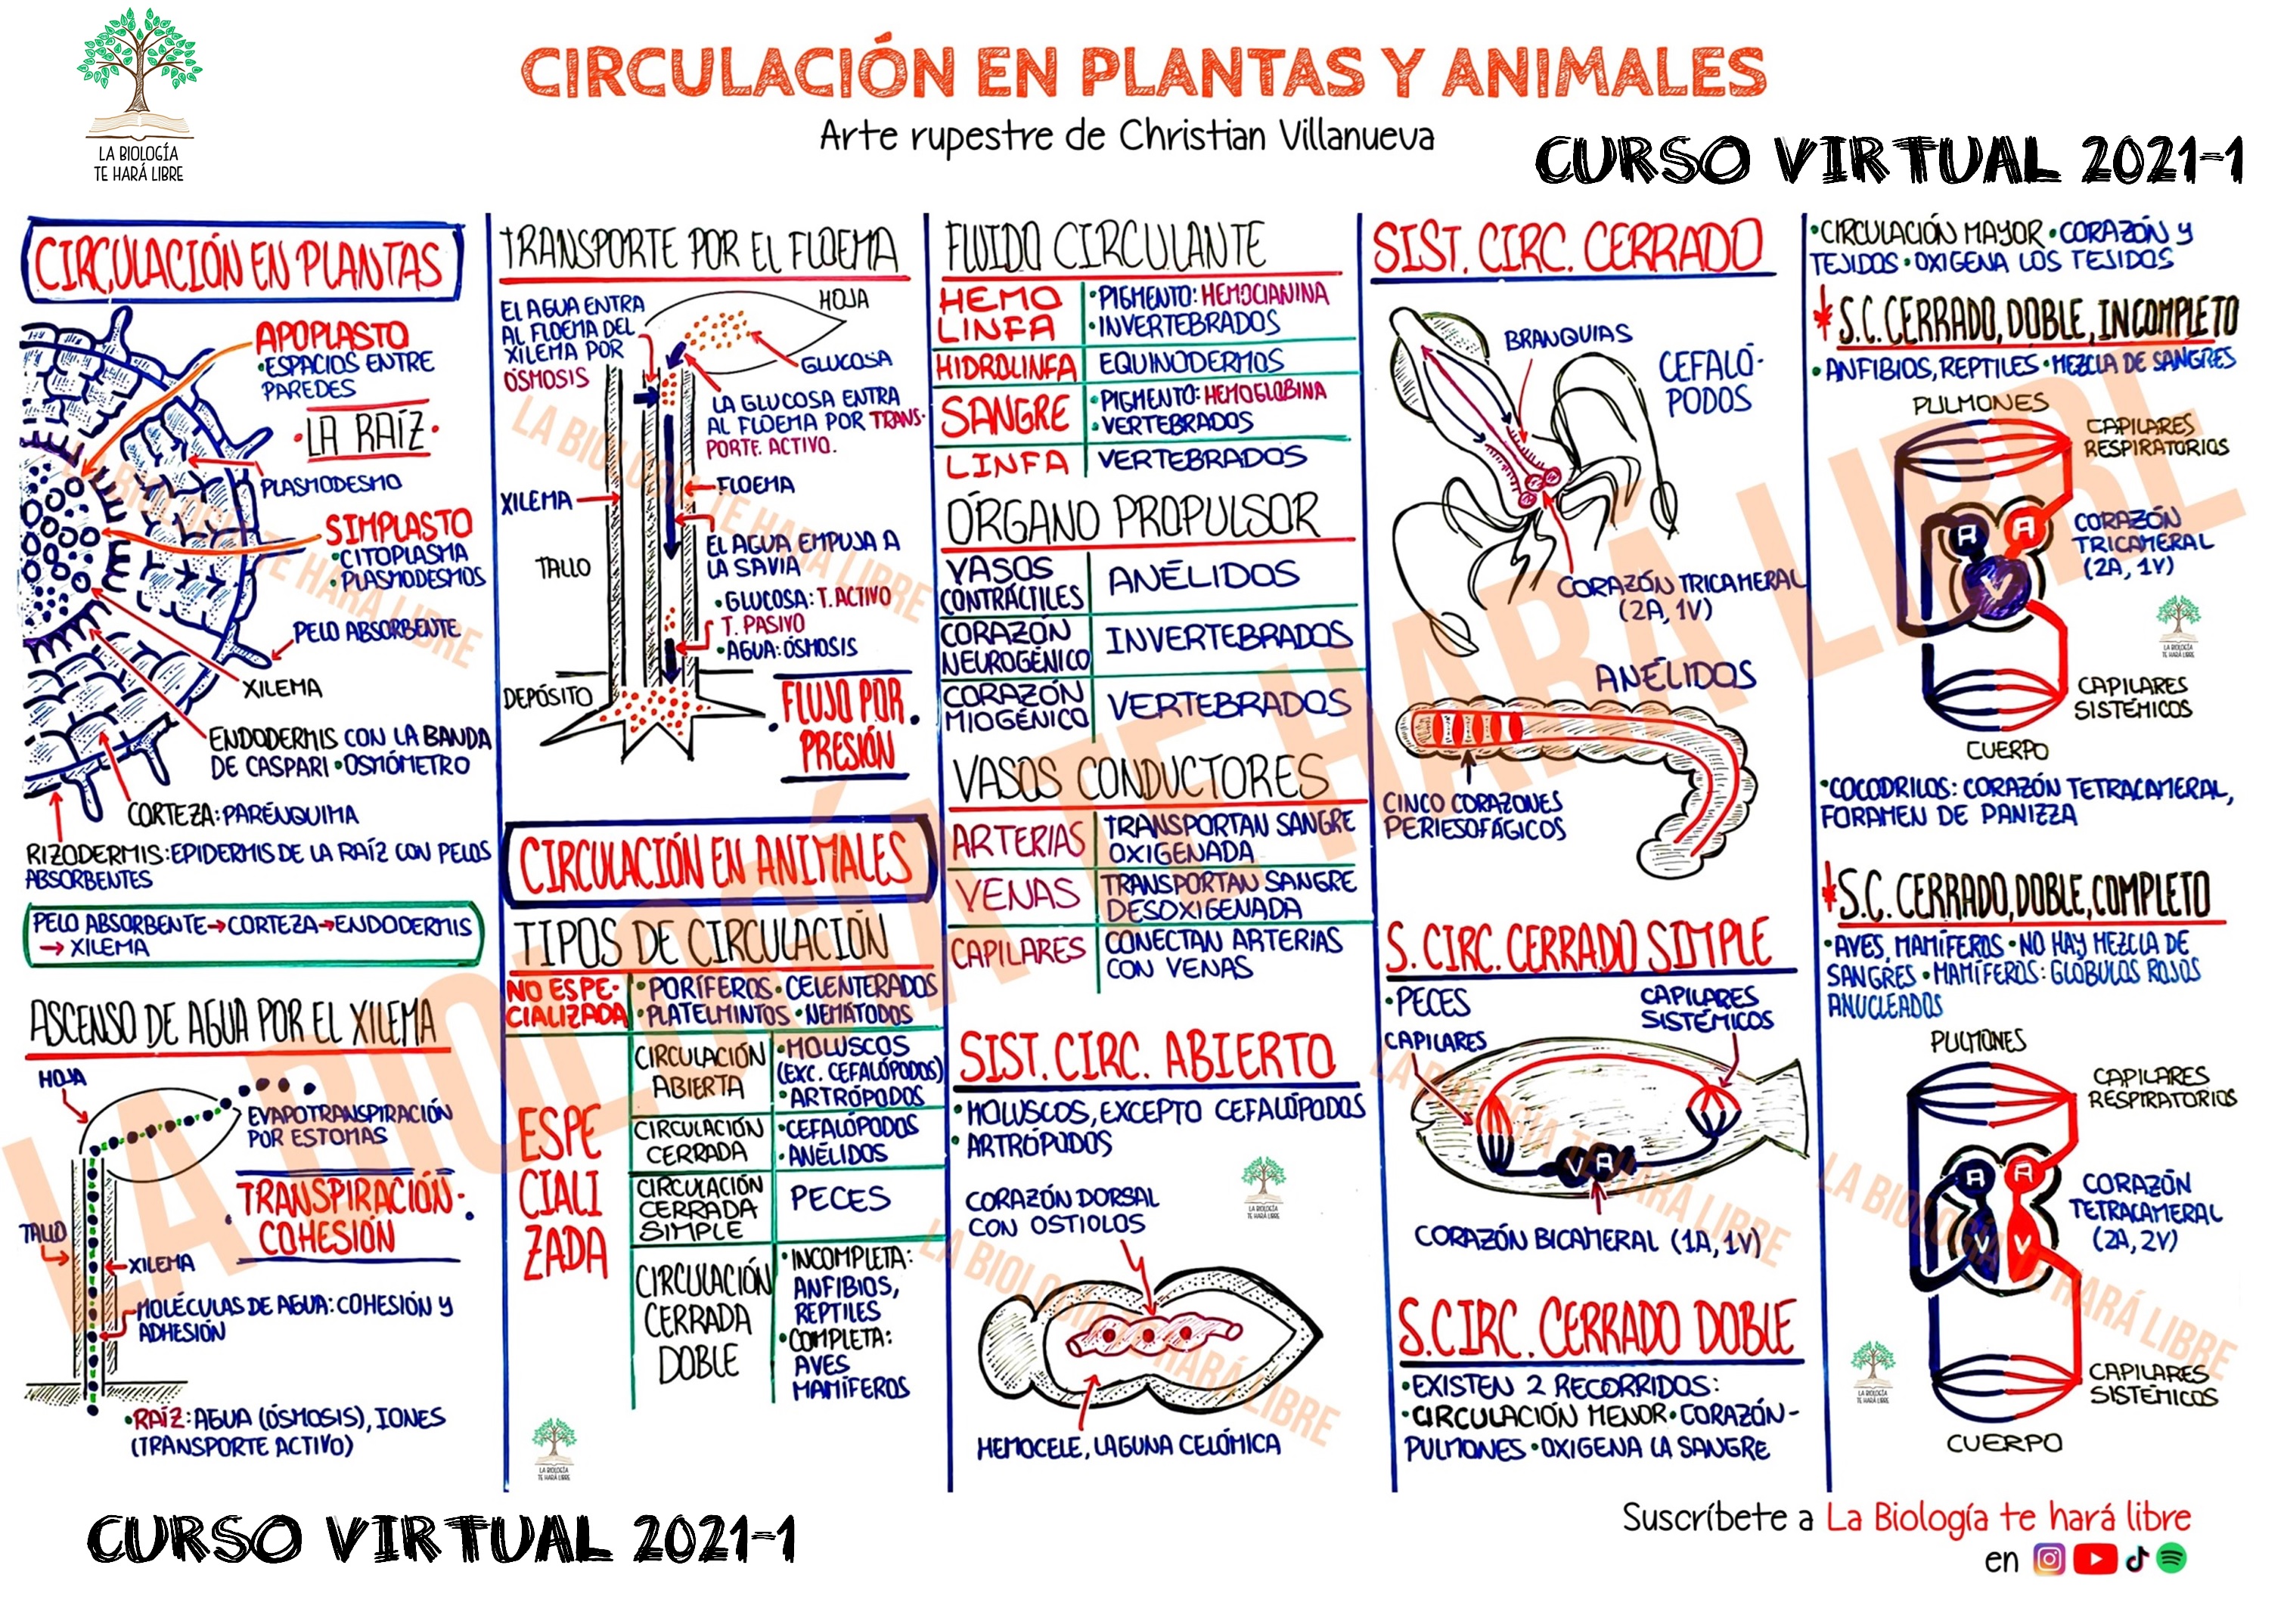 LA BIOLOGÍA
TE HARÁ LIBRE
CIRCULACIÓN EN PLANTAS Y ANIMALES
Arte rupestre de Christian Villanueva
CURSO VIRTUAL 2021-1
CIRCULACIÓN EN PLANTAS
APOPLASTO
•ESPACIOS ENTRE
PAREDES
•LA RAÍZ•
PLASMODESMO
SIMPLASTO
•CITOPLASMA
•PLASMODESMOS
PELO ABSORBENTE
XILEMA
ENDODERMIS CON LA BANDA
DE CASPARI•OSMÓMETRO
CORTEZA:PARÉNQUIMA
RIZODERMIS:EPIDERMIS DE LA RAÍZ CON PELOS
ABSORBENTES
PELO ABSORBENTE→CORTEZA→ENDODERMIS
→ XILEMA
ASCENSO DE AGUA POR EL XILEMA
HOJA
EVAPOTRANSPIRACIÓN
POR ESTOMAS
•TRANSPIRACIÓN•
COHESIÓN
TALLO
XILEMA
MOLÉCULAS DE AGUA:COHESIÓN Y
ADHESIÓN
•RAÍZ:AGUA (ÓSMOSIS), IONES
(TRANSPORTE ACTIVO)
TRANSPORTE POR EL FLOEMA
EL AGUA ENTRA
AL FLOEMA DEL
XILEMA POR
ÓSMOSIS
HOJA
GLUCOSA
LA GLUCOSA ENTRA
AL FLOEMA POR TRANS-
PORTE ACTIVO.
XILEMA
FLOEMA
TALLO
EL AGUA EMPUJA A
LA SAVIA
•GLUCOSA:T.ACTIVO
T. PASIVO
•AGUA:ÓSMOSIS
DEPÓSITO
•FLUJO POR•
PRESIÓN
CIRCULACIÓN EN ANIMALES
TIPOS DE CIRCULACIÓN
NO ESPE-
CIALIZADA
•PORÍFEROS•CELENTERADOS
•PLATELMINTOS•NEMÁTODOS
ESPE
CIALI
ZADA
CIRCULACIÓN
ABIERTA
•MOLUSCOS
(EXC. CEFALÓPODOS)
•ARTRÓPODOS
CIRCULACIÓN
CERRADA
•CEFALÓPODOS
•ANÉLIDOS
CIRCULACIÓN
CERRADA
SIMPLE
PECES
CIRCULACIÓN
CERRADA
DOBLE
•INCOMPLETA:
ANFIBIOS,
REPTILES
•COMPLETA:
AVES
MAMÍFEROS
LA BIOLOGÍA
TE HARÁ LIBRE
FLUIDO CIRCULANTE
HEMO
LINFA
•PIGMENTO:HEMOCIANINA
•INVERTEBRADOS
HIDROLINFA
EQUINODERMOS
SANGRE
•PIGMENTO:HEMOGLOBINA
•VERTEBRADOS
LINFA
VERTEBRADOS
ÓRGANO PROPULSOR
VASOS
CONTRÁCTILES
ANÉLIDOS
CORAZÓN
NEUROGÉNICO
INVERTEBRADOS
CORAZÓN
MIOGÉNICO
VERTEBRADOS
VASOS CONDUCTORES
ARTERIAS
TRANSPORTAN SANGRE
OXIGENADA
VENAS
TRANSPORTAN SANGRE
DESOXIGENADA
CAPILARES
CONECTAN ARTERIAS
CON VENAS
SIST. CIRC. ABIERTO
•MOLUSCOS, EXCEPTO CEFALÓPODOS
•ARTRÓPODOS
CORAZÓN DORSAL
CON OSTIOLOS
LA BIOLOGÍA
TE HARÁ LIBRE
HEMOCELE, LAGUNA CELÓMICA
SIST. CIRC. CERRADO
BRANQUIAS
CEFALÓ-
PODOS
CORAZÓN TRICAMERAL
(2A, 1V)
ANÉLIDOS
CINCO CORAZONES
PERIESOFÁGICOS
S. CIRC. CERRADO SIMPLE
•PECES
CAPILARES
SISTÉMICOS
CAPILARES
V A
CORAZÓN BICAMERAL (1A, 1V)
S.CIRC. CERRADO DOBLE
•EXISTEN 2 RECORRIDOS:
•CIRCULACIÓN MENOR•CORAZÓN-
PULMONES•OXIGENA LA SANGRE
•CIRCULACIÓN MAYOR•CORAZÓN Y
TEJIDOS•OXIGENA LOS TEJIDOS
*S.C. CERRADO, DOBLE, INCOMPLETO
•ANFIBIOS, REPTILES•MEZCLA DE SANGRES
PULMONES
CAPILARES
RESPIRATORIOS
A A
V
CORAZÓN
TRICAMERAL
(2A, 1V)
LA BIOLOGÍA
TE HARÁ LIBRE
CAPILARES
SISTÉMICOS
CUERPO
•COCODRILOS: CORAZÓN TETRACAMERAL,
FORAMEN DE PANIZZA
*S.C. CERRADO, DOBLE, COMPLETO
•AVES, MAMÍFEROS•NO HAY MEZCLA DE
SANGRES•MAMÍFEROS: GLÓBULOS ROJOS
ANUCLEADOS
PULMONES
CAPILARES
RESPIRATORIOS
A A
V V
CORAZÓN
TETRACAMERAL
(2A, 2V)
LA BIOLOGÍA
TE HARÁ LIBRE
CAPILARES
SISTÉMICOS
CUERPO
LA BIOLOGÍA TE HARÁ LIBRE
LA BIOLOGÍA TE HARÁ LIBRE
LA BIOLOGÍA TE HARÁ LIBRE
LA BIOLOGÍA TE HARÁ LIBRE
LA BIOLOGÍA TE HARÁ LIBRE
LA BIOLOGÍA TE HARÁ LIBRE
CURSO VIRTUAL 2021-1
Suscríbete a La Biología te hará libre
en